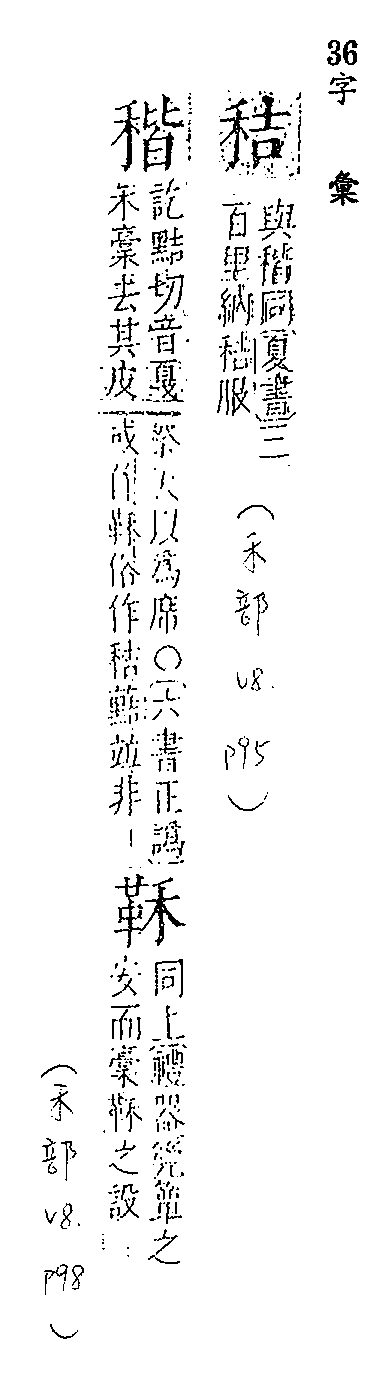 36
字彙
秸
與稭同夏書二
百里納秸服
(禾部 v8. p95)
稭
訖黠切音戛祭天以爲席○六書正譌
禾稾去其皮或作鞂俗作秸藍並非
鞂
同上禮器莞簟之
安而稾鞂之設
(禾部 v8. p98)